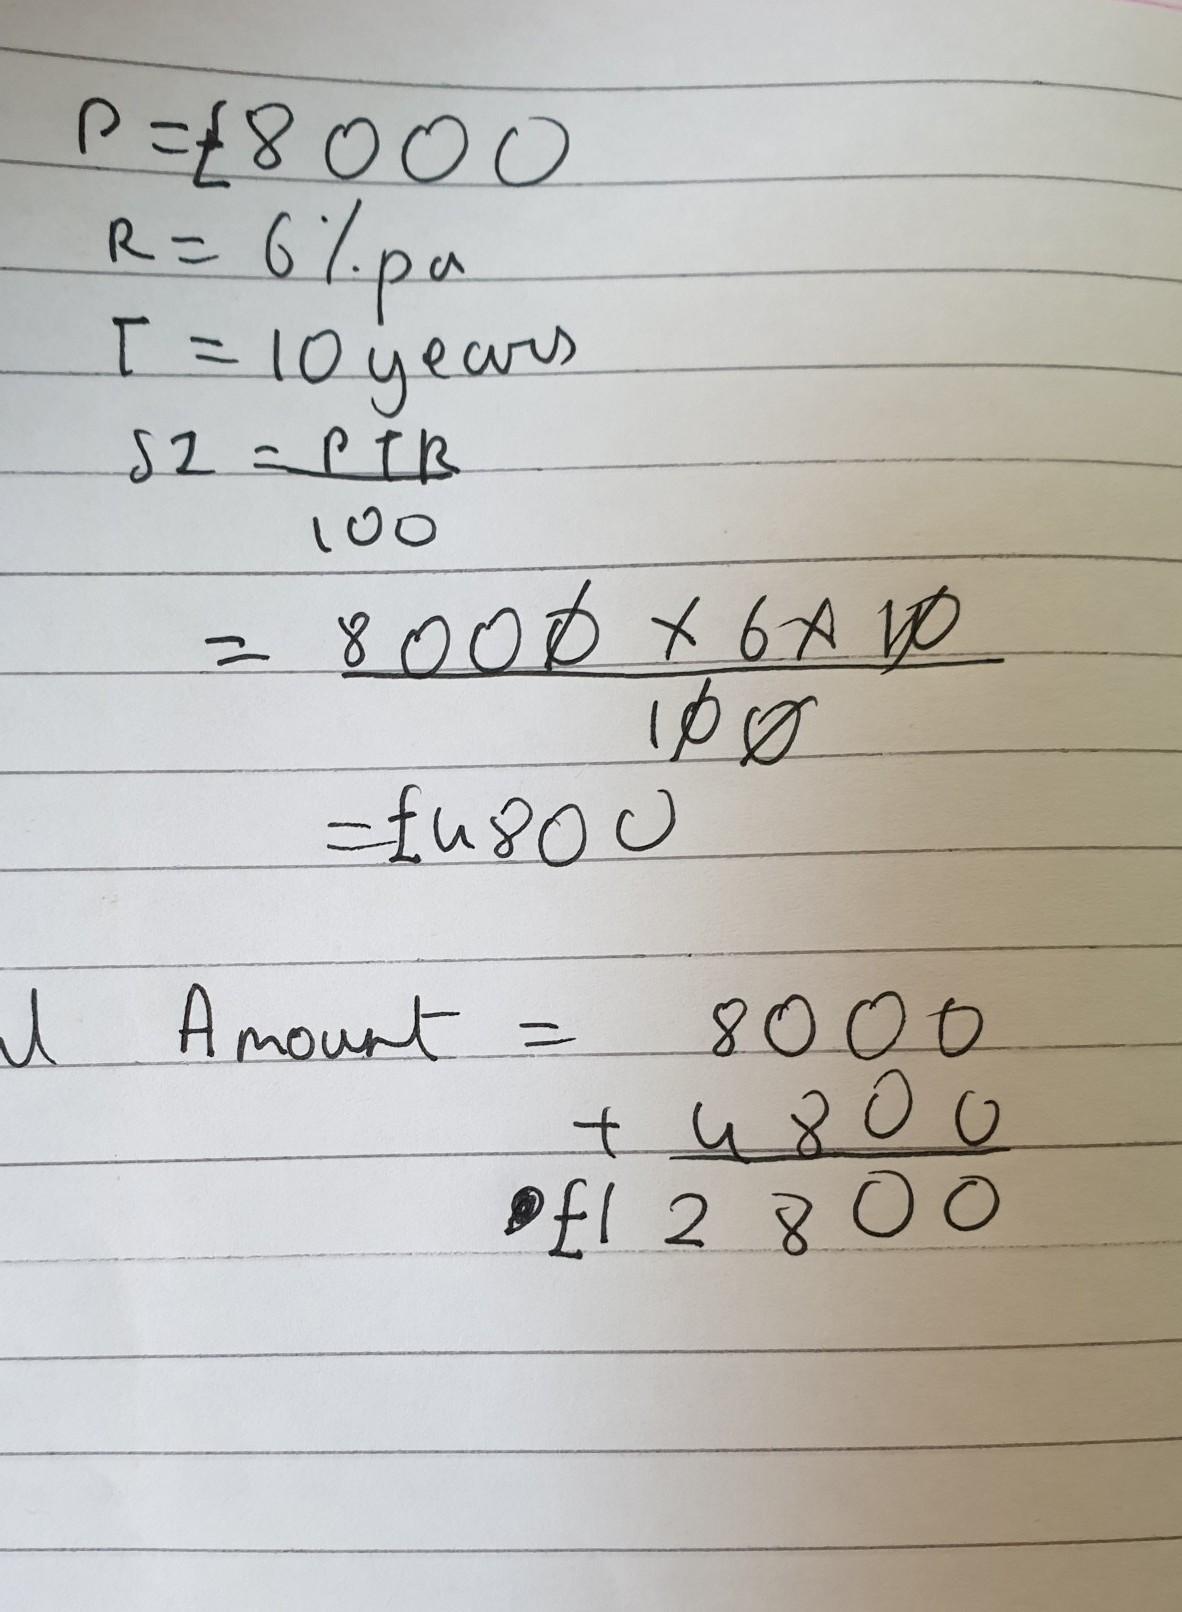 P = £8000
R = 6% pa
T = 10 years
SI = PTR
100
= 8000 x 6 x 10
100
= £4800
Amount = 8000
+ 4800
£12800